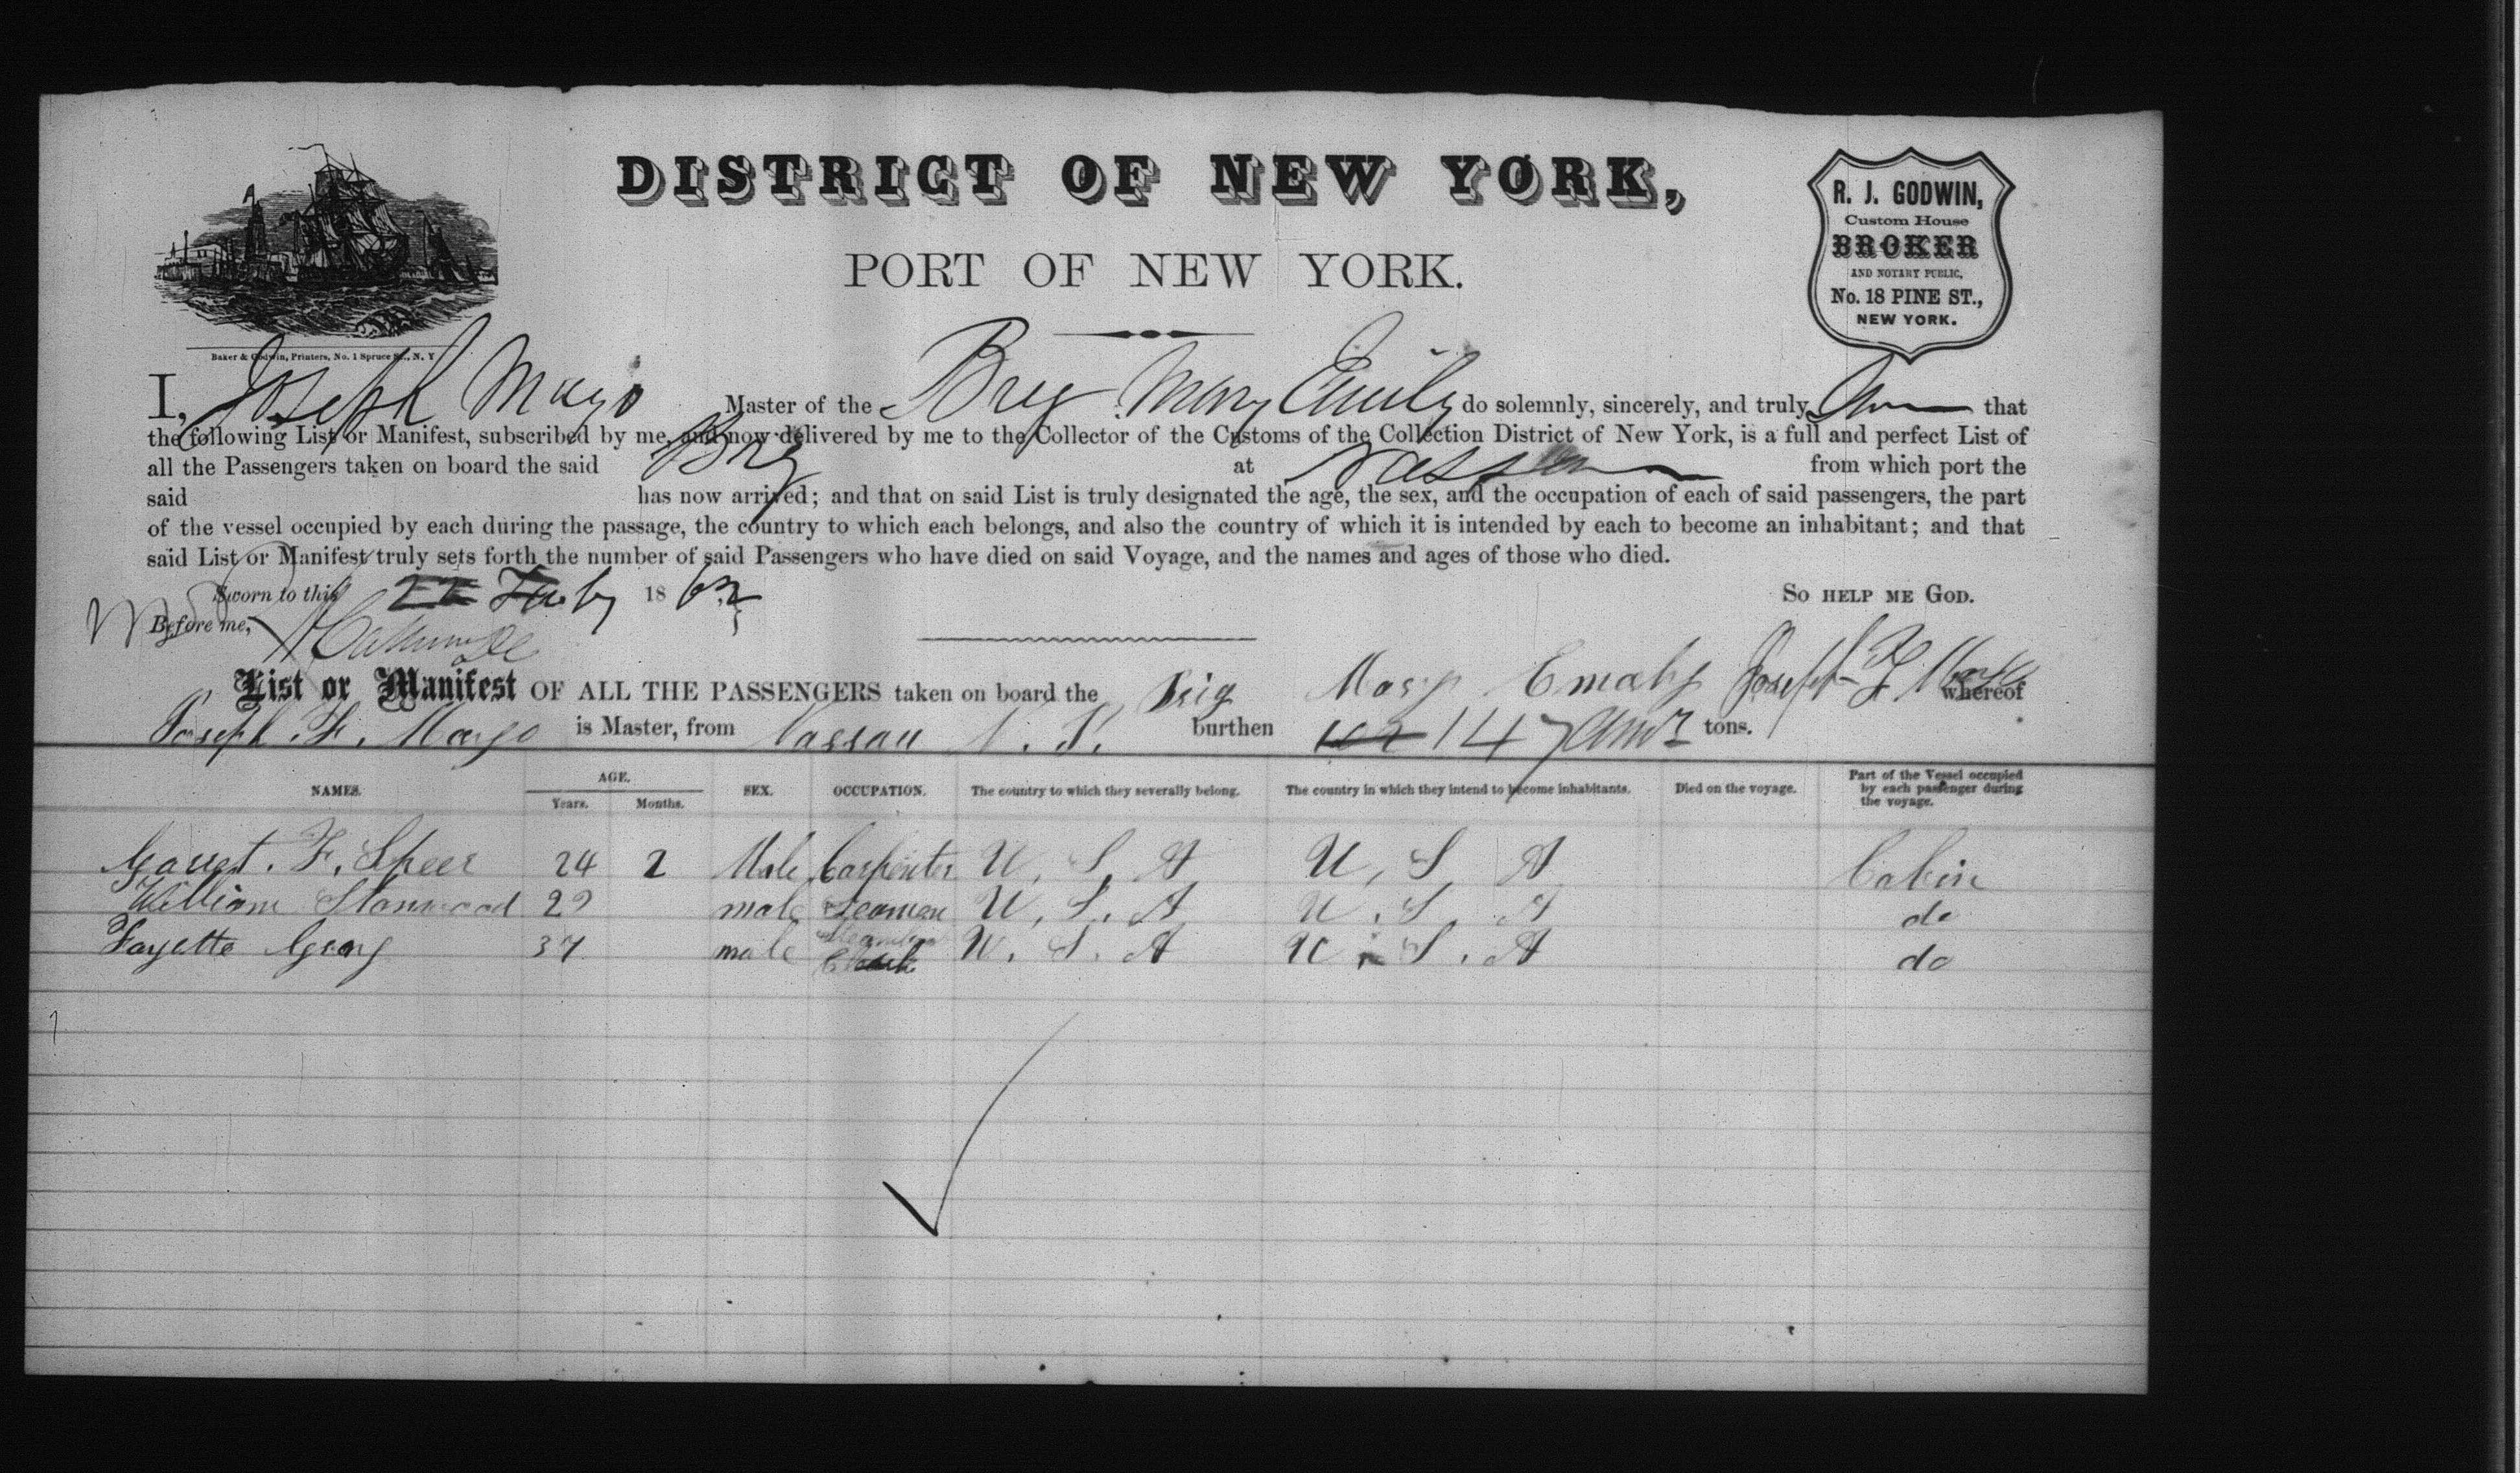 DISTRICT OF NEW YORK,
PORT OF NEW YORK.
R. J. GODWIN,
Custom House
BROKER
AND NOTARY PUBLIC,
No. 18 PINE ST.,
NEW YORK.
Baker & Godwin, Printers, No. 1 Spruce St., N. Y
I, Joseph Mayo Master of the Brig Mary Emily do solemnly, sincerely, and truly that
the following List or Manifest, subscribed by me, and now delivered by me to the Collector of the Customs of the Collection District of New York, is a full and perfect List of
all the Passengers taken on board the said Brig at Nassau from which port the
said has now arrived; and that on said List is truly designated the age, the sex, and the occupation of each of said passengers, the part
of the vessel occupied by each during the passage, the country to which each belongs, and also the country of which it is intended by each to become an inhabitant; and that
said List or Manifest truly sets forth the number of said Passengers who have died on said Voyage, and the names and ages of those who died.
Sworn to this 18 62 So help me God.
Before me,
List or Manifest OF ALL THE PASSENGERS taken on board the Brig Mary Emaly Joseph F Mayo whereof
Joseph F. Mayo is Master, from Nassau N. P. burthen 147 tons.
NAMES. AGE. Years. Months. SEX. OCCUPATION. The country to which they severally belong. The country in which they intend to become inhabitants. Died on the voyage. Part of the Vessel occupied by each passenger during the voyage.
Garret. F. Speer 24 2 Male Carpenter U. S. A U, S A Cabin
William Stanwood 29 male Seaman U, S. A U. S. A do
Fayette 37 male U. S. A U. S. A do